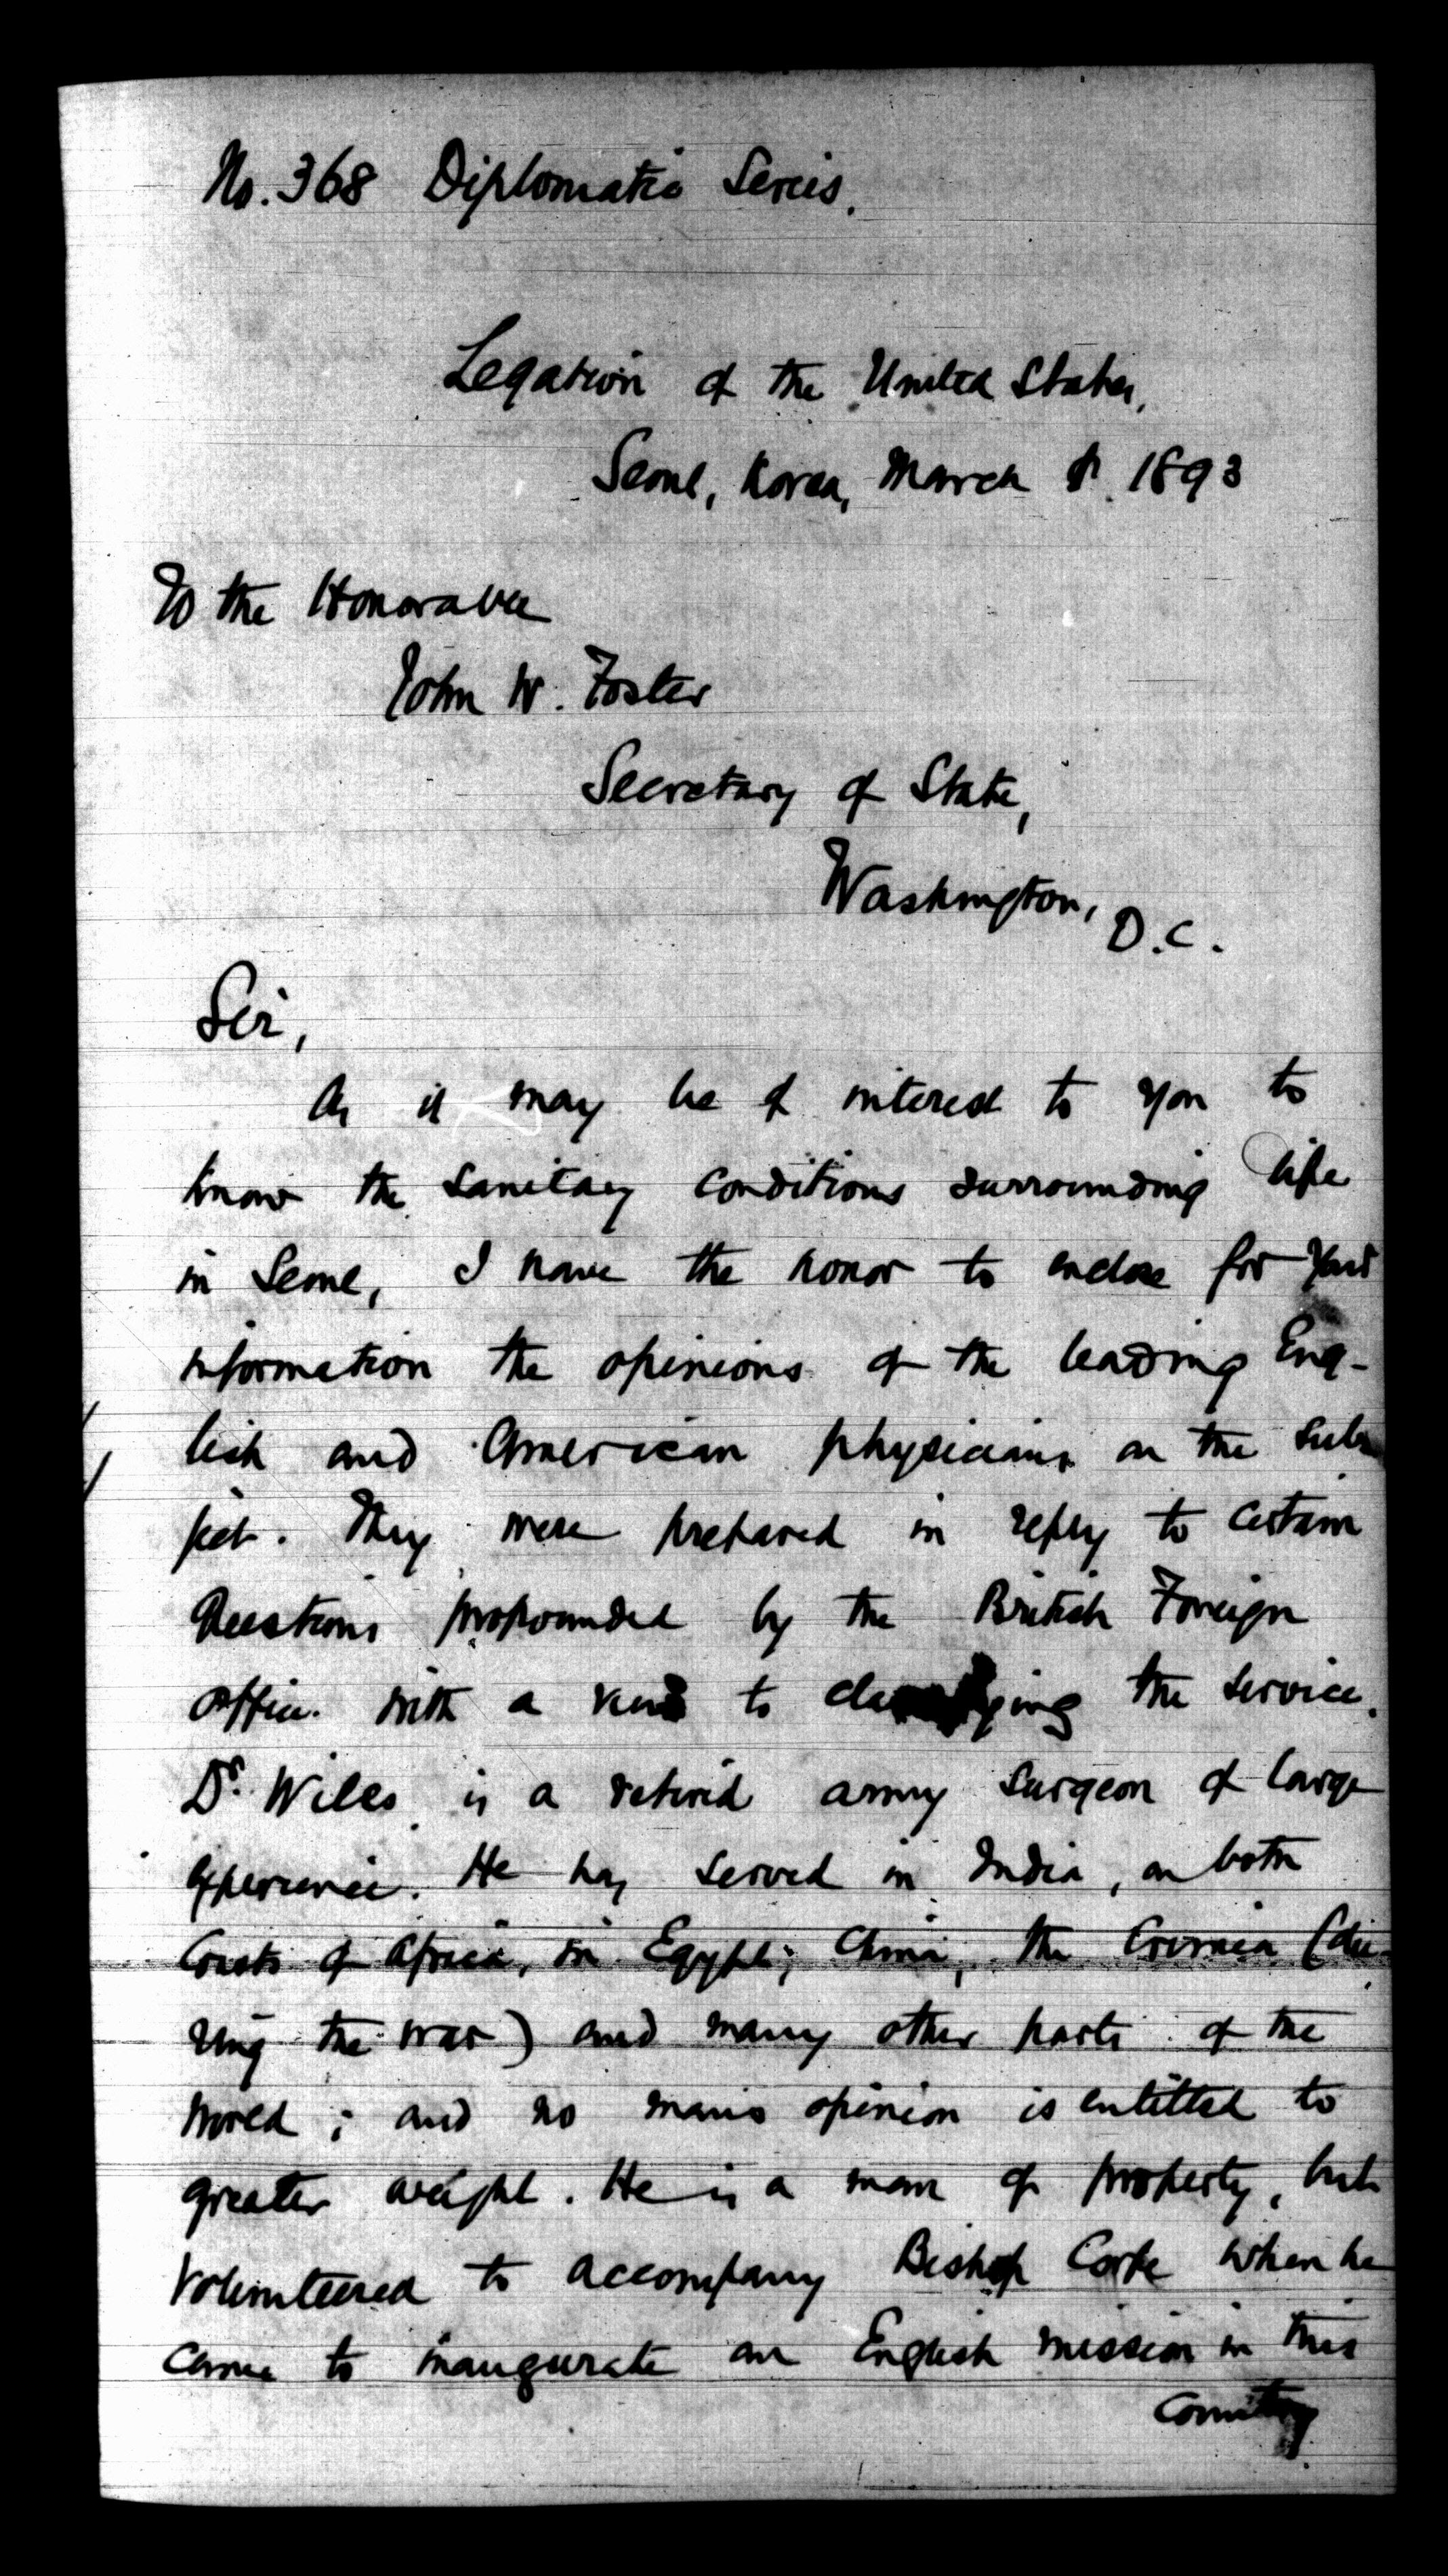 No. 368 Diplomatic Series.
Legation of the United States,
Seoul, Korea, March 1893
To the Honorable
John W. Foster
Secretary of State,
Washington,
D.C.
Sir,
As it may be of interest to you to
know the sanitary conditions surrounding life
in Seoul, I have the honor to enclose for your
information the opinions of the leading Eng-
lish and American physicians on the sub-
ject. They were prepared in reply to certain
Questions propounded by the British Foreign
Office with a view to the service.
Dr. Wiles is a retired army surgeon of large
experience. He has served in India, on both
Coasts of Africa, in Egypt, China, the Crimea (du-
ring the war) and many other parts of the
world; and no man's opinion is entitled to
greater weight. He is a man of property, but
volunteered to accompany Bishop Corfe when he
came to inaugurate an English mission in this
Country